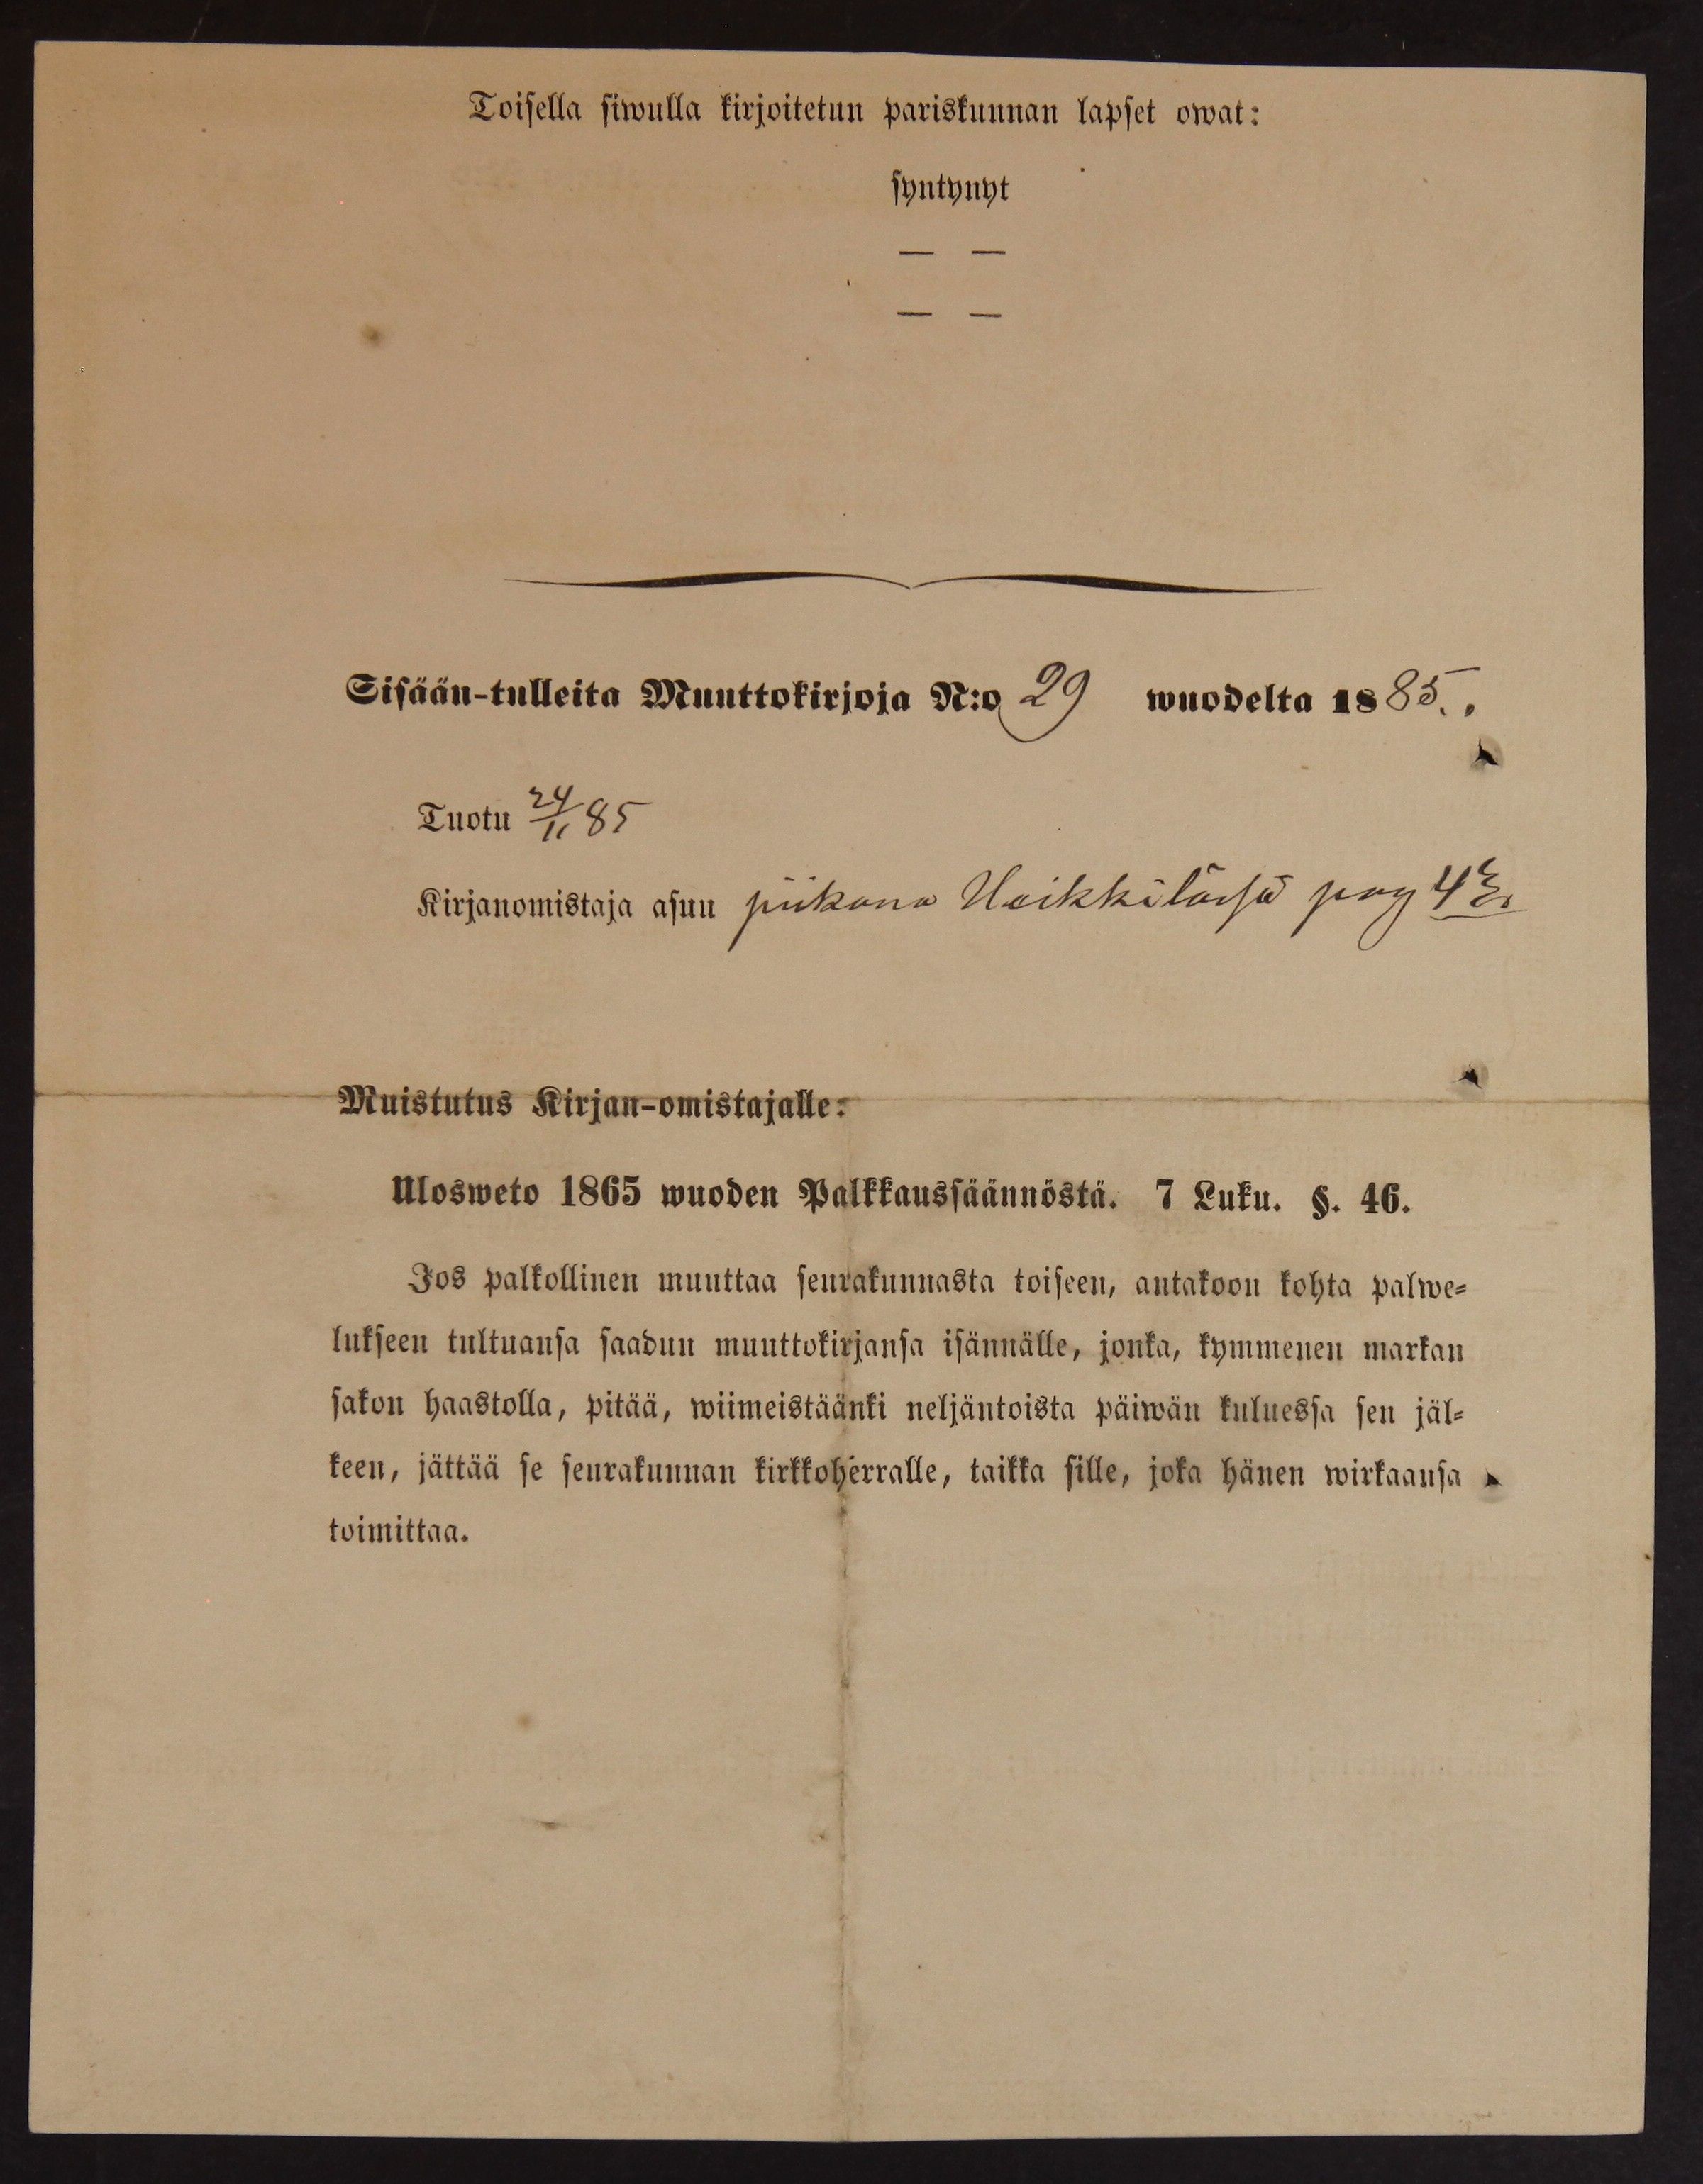 Toisella siwulla kirjoitetun pariskunnan lapset owat:
syntynyt
— —
— —
Sisään-tulleita Muuttokirjoja N:o 29 wuodelta 1885.
Tuotu 24/11 85
Kirjanomistaja asuu piikana Heikkilässä pag
Muistutus Kirjan-omistajalle:
Ulosweto 1865 wuoden Palkkaussäännöstä. 7 Luku. §. 46.
Jos palkollinen muuttaa seurakunnasta toiseen, antakoon kohta palwe-
lukseen tultuansa saadun muuttokirjansa isännälle, jonka, kymmenen markan
sakon haastolla, pitää, wiimeistäänki neljäntoista päiwän kuluessa sen jäl-
keen, jättää se seurakunnan kirkkoherralle, taikka sille, joka hänen wirkaansa
toimittaa.